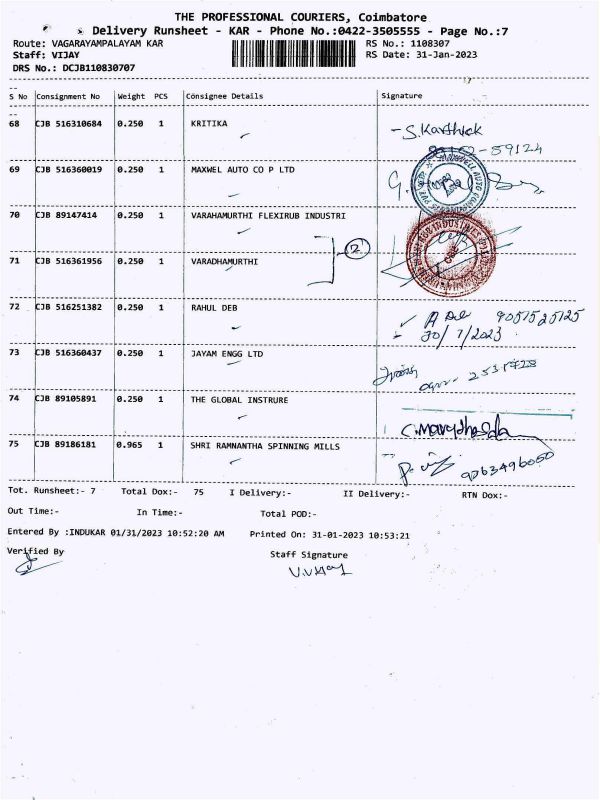 THE PROFESSIONAL COURIERS, Coimbatore
Delivery Runsheet - KAR - Phone No.:0422-3505555 - Page No.:7
Route: VAGARAYAMPALAYAM KAR RS No.: 1108307
Staff: VIJAY RS Date: 31-Jan-2023
DRS No.: DCJB110830707
S No Consignment No Weight PCS Consignee Details Signature
68 CJB 516310684 0.250 1 KRITIKA
S. Karthick
59124
69 CJB 516360019 0.250 1 MAXWEL AUTO CO P LTD
70 CJB 89147414 0.250 1 VARAHAMURTHI FLEXIRUB INDUSTRI
2
71 CJB 516361956 0.250 1 VARADHAMURTHI
72 CJB 516251382 0.250 1 RAHUL DEB
30/7/2023
73 CJB 516360437 0.250 1 JAYAM ENGG LTD
74 CJB 89105891 0.250 1 THE GLOBAL INSTRURE
75 CJB 89186181 0.965 1 SHRI RAMNANTHA SPINNING MILLS
9763496050
Tot. Runsheet:- 7 Total Dox:- 75 I Delivery:- II Delivery:- RTN Dox:-
Out Time:- In Time:- Total POD:-
Entered By :INDUKAR 01/31/2023 10:52:20 AM Printed On: 31-01-2023 10:53:21
Verified By Staff Signature
V.VIJAY